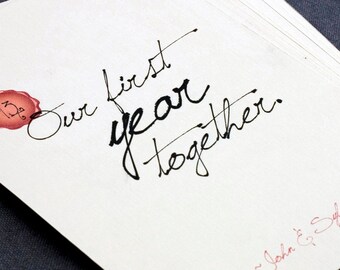 Our first
year
together.
~ John &